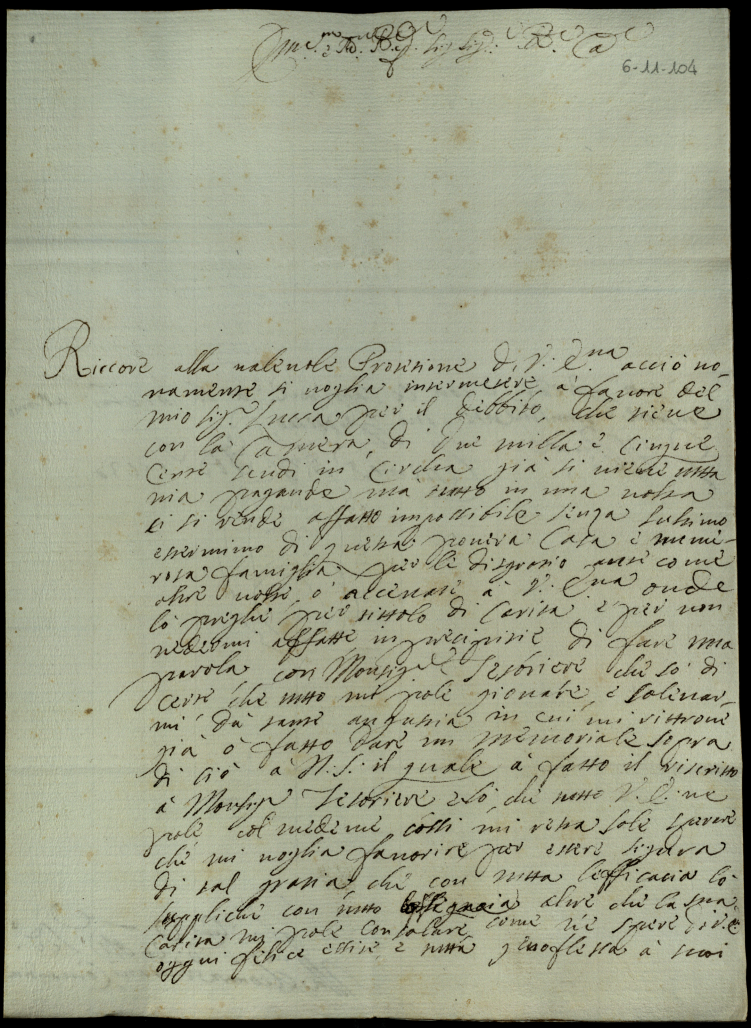 6-11-104
Riccore alla valevole Protetione di V. E.na acciò no-
vamente si voglia intermetere à favore del
mio Sig.r Lucca per il debbito, che tiene
con la Camera, di due milla è cinque
cente scudi in circha già si viene tutta
via pagande mà tutto in una volta
ci si rende affatto impossibile senza l'ultimo
esterminio di questa povera Casa è nume-
rosa famiglia per le disgrasio come
altre volte ò accenate à V. E.na onde
lò preghe per tittolo di Carita è per non
vedermi affatte in precipitie di fare una
parola con Monsig.re Tesoriere che sò di
certe che tutto mi pole giovare, è solevar-
mi dà tante angustia in cui mi rittrove
già ò fatto dare un memoriale sopra
di ciò à N. S. il quale à fatto il riscritto
à Monsig.re Tesoriere e sò, che tutto V. E. ne
pole col medeme, cosi mi resta sole sperare
che mi voglia favorire per essere sigura
di tal gratia che con tutta l'efficacia lò
suppliche con tutto altre che la sua
Carita mi pole consolare come ne spere di V. E.
oggni felice esite, è tutta genoflessa à suoi